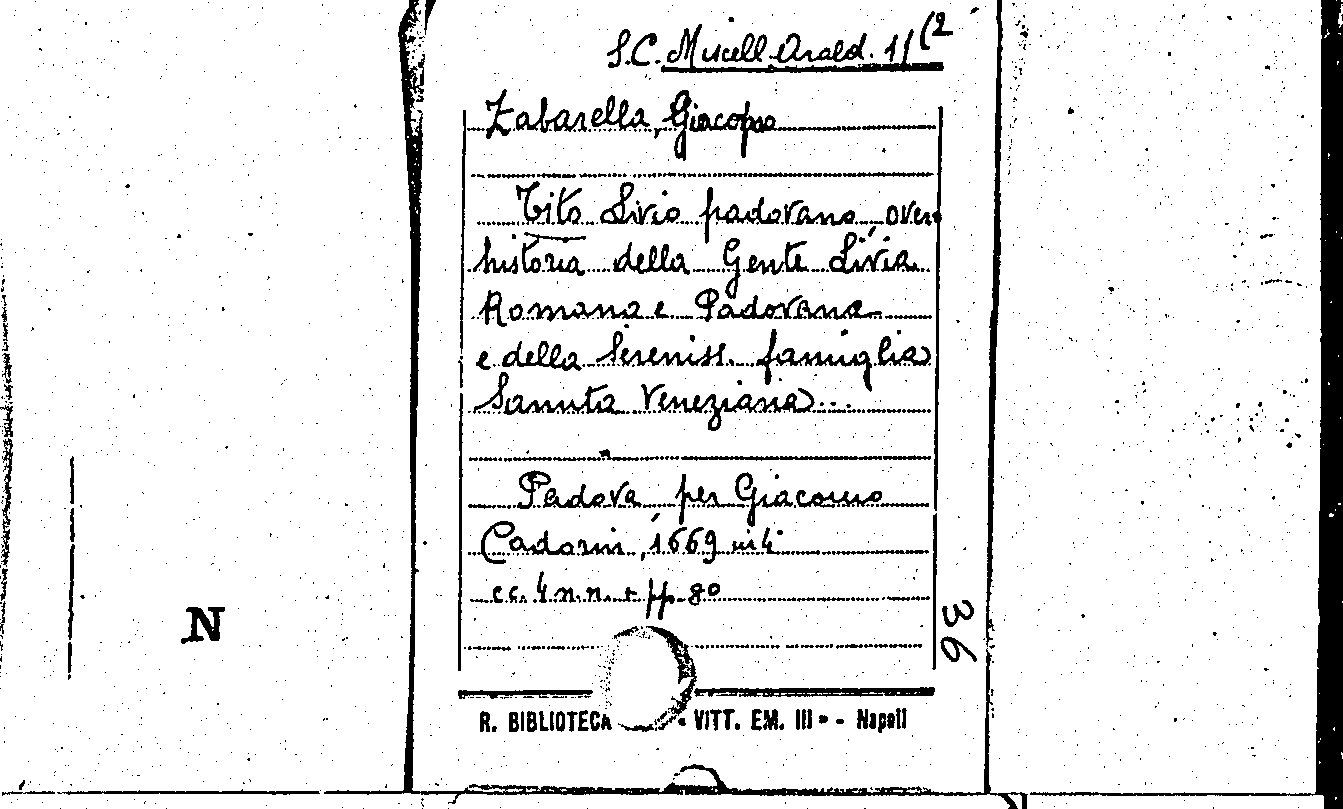 S.C. Miscell. Arald. 1/(2
Zabarella, Giacopo
Tito Livio padovano, overo
historia della Gente Livia
Romana e Padovana
e della Sereniss. famiglia
Sanuta Veneziana...
Padova, per Giacomo
Cadorin, 1669 in 4°
cc. 4 n.n. + pp. 80
36
N
R. BIBLIOTECA « VITT. EM. III » - Napoli